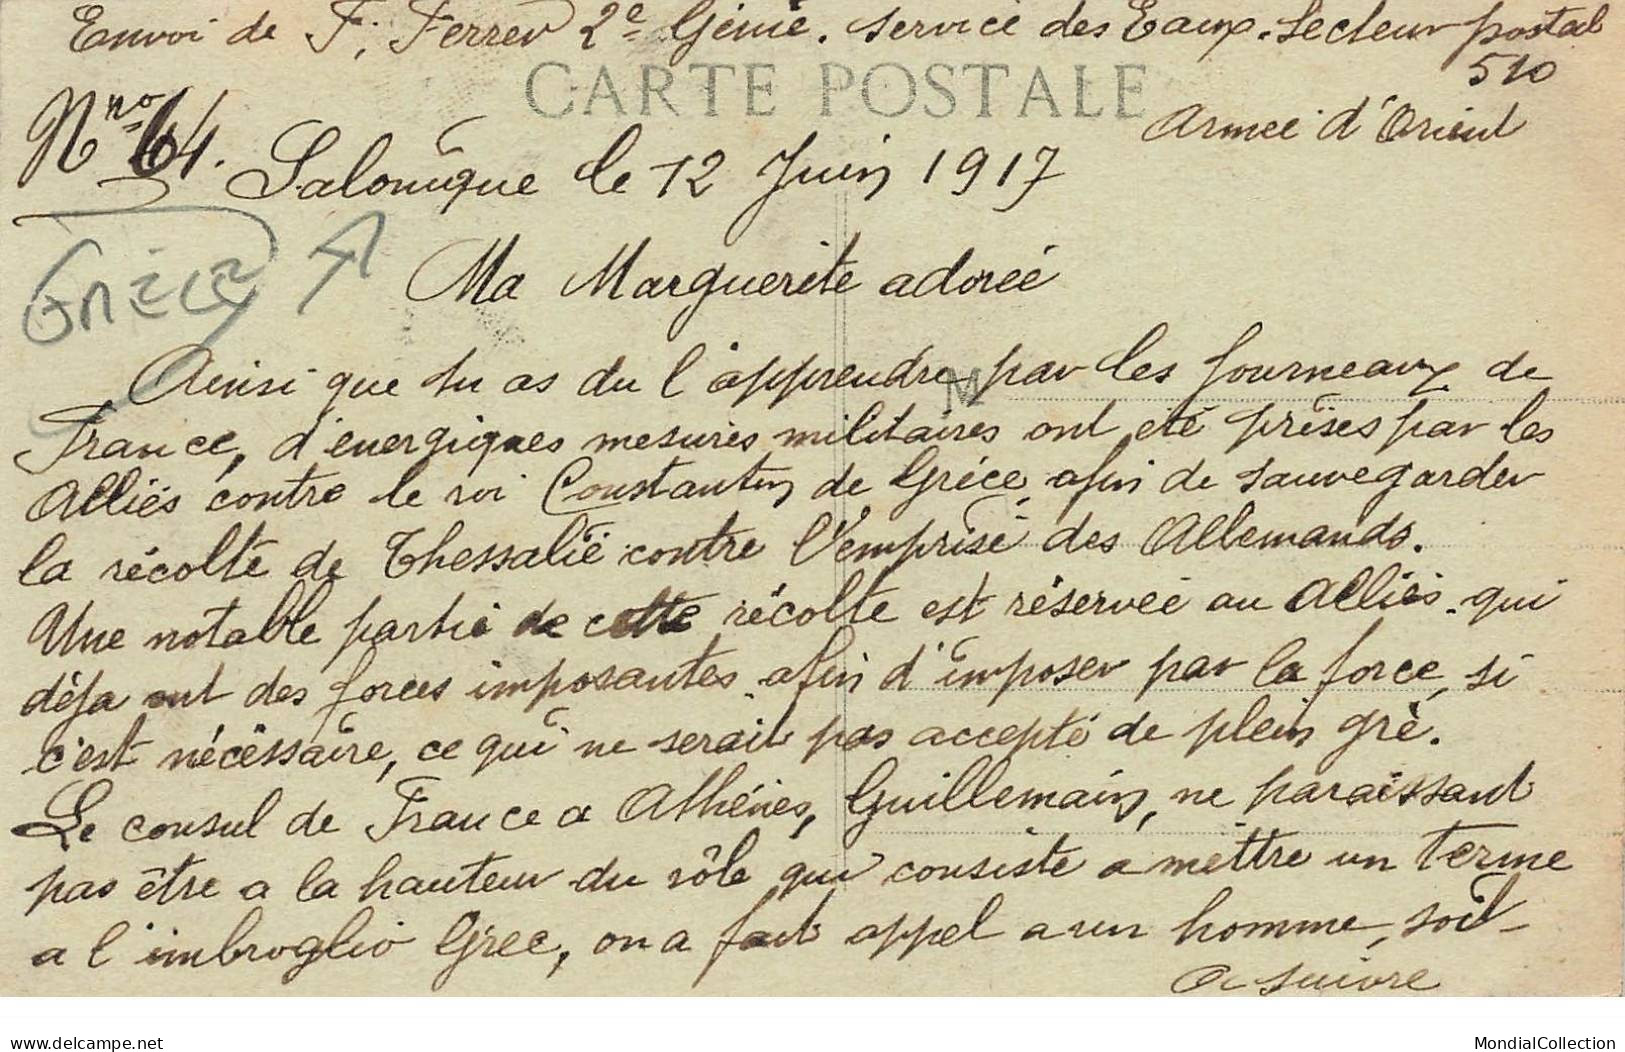 Envoi de F. Ferrer 2e Génie. Service des Eaux. Secteur postal
510
CARTE POSTALE
Armée d'Orient
Nno 64.
Salonique le 12 Juin 1917
GRÈCE
Ma Marguerite adorée
Ainsi que tu as du l'apprendre par les journeaux de
France, d'energiques mesures militaires ont été prises par les
Alliés contre le roi Constantin de Gréce, afin de sauvegarder
la récolte de Thessalie contre l'emprise des Allemands.
Une notable partie de cette récolte est réservée au Alliés qui
déja ont des forces imposantes afin d'imposer par la force, si
c'est nécéssaire, ce qui ne serait pas accepté de plein gré.
Le consul de France a Athénes, Guillemain, ne paraissant
pas être a la hauteur du rôle qui consiste a mettre un terme
a l'imbroglio Grec, on a fait appel a un homme, soit
a suivre
delcampe.net
MondialCollection